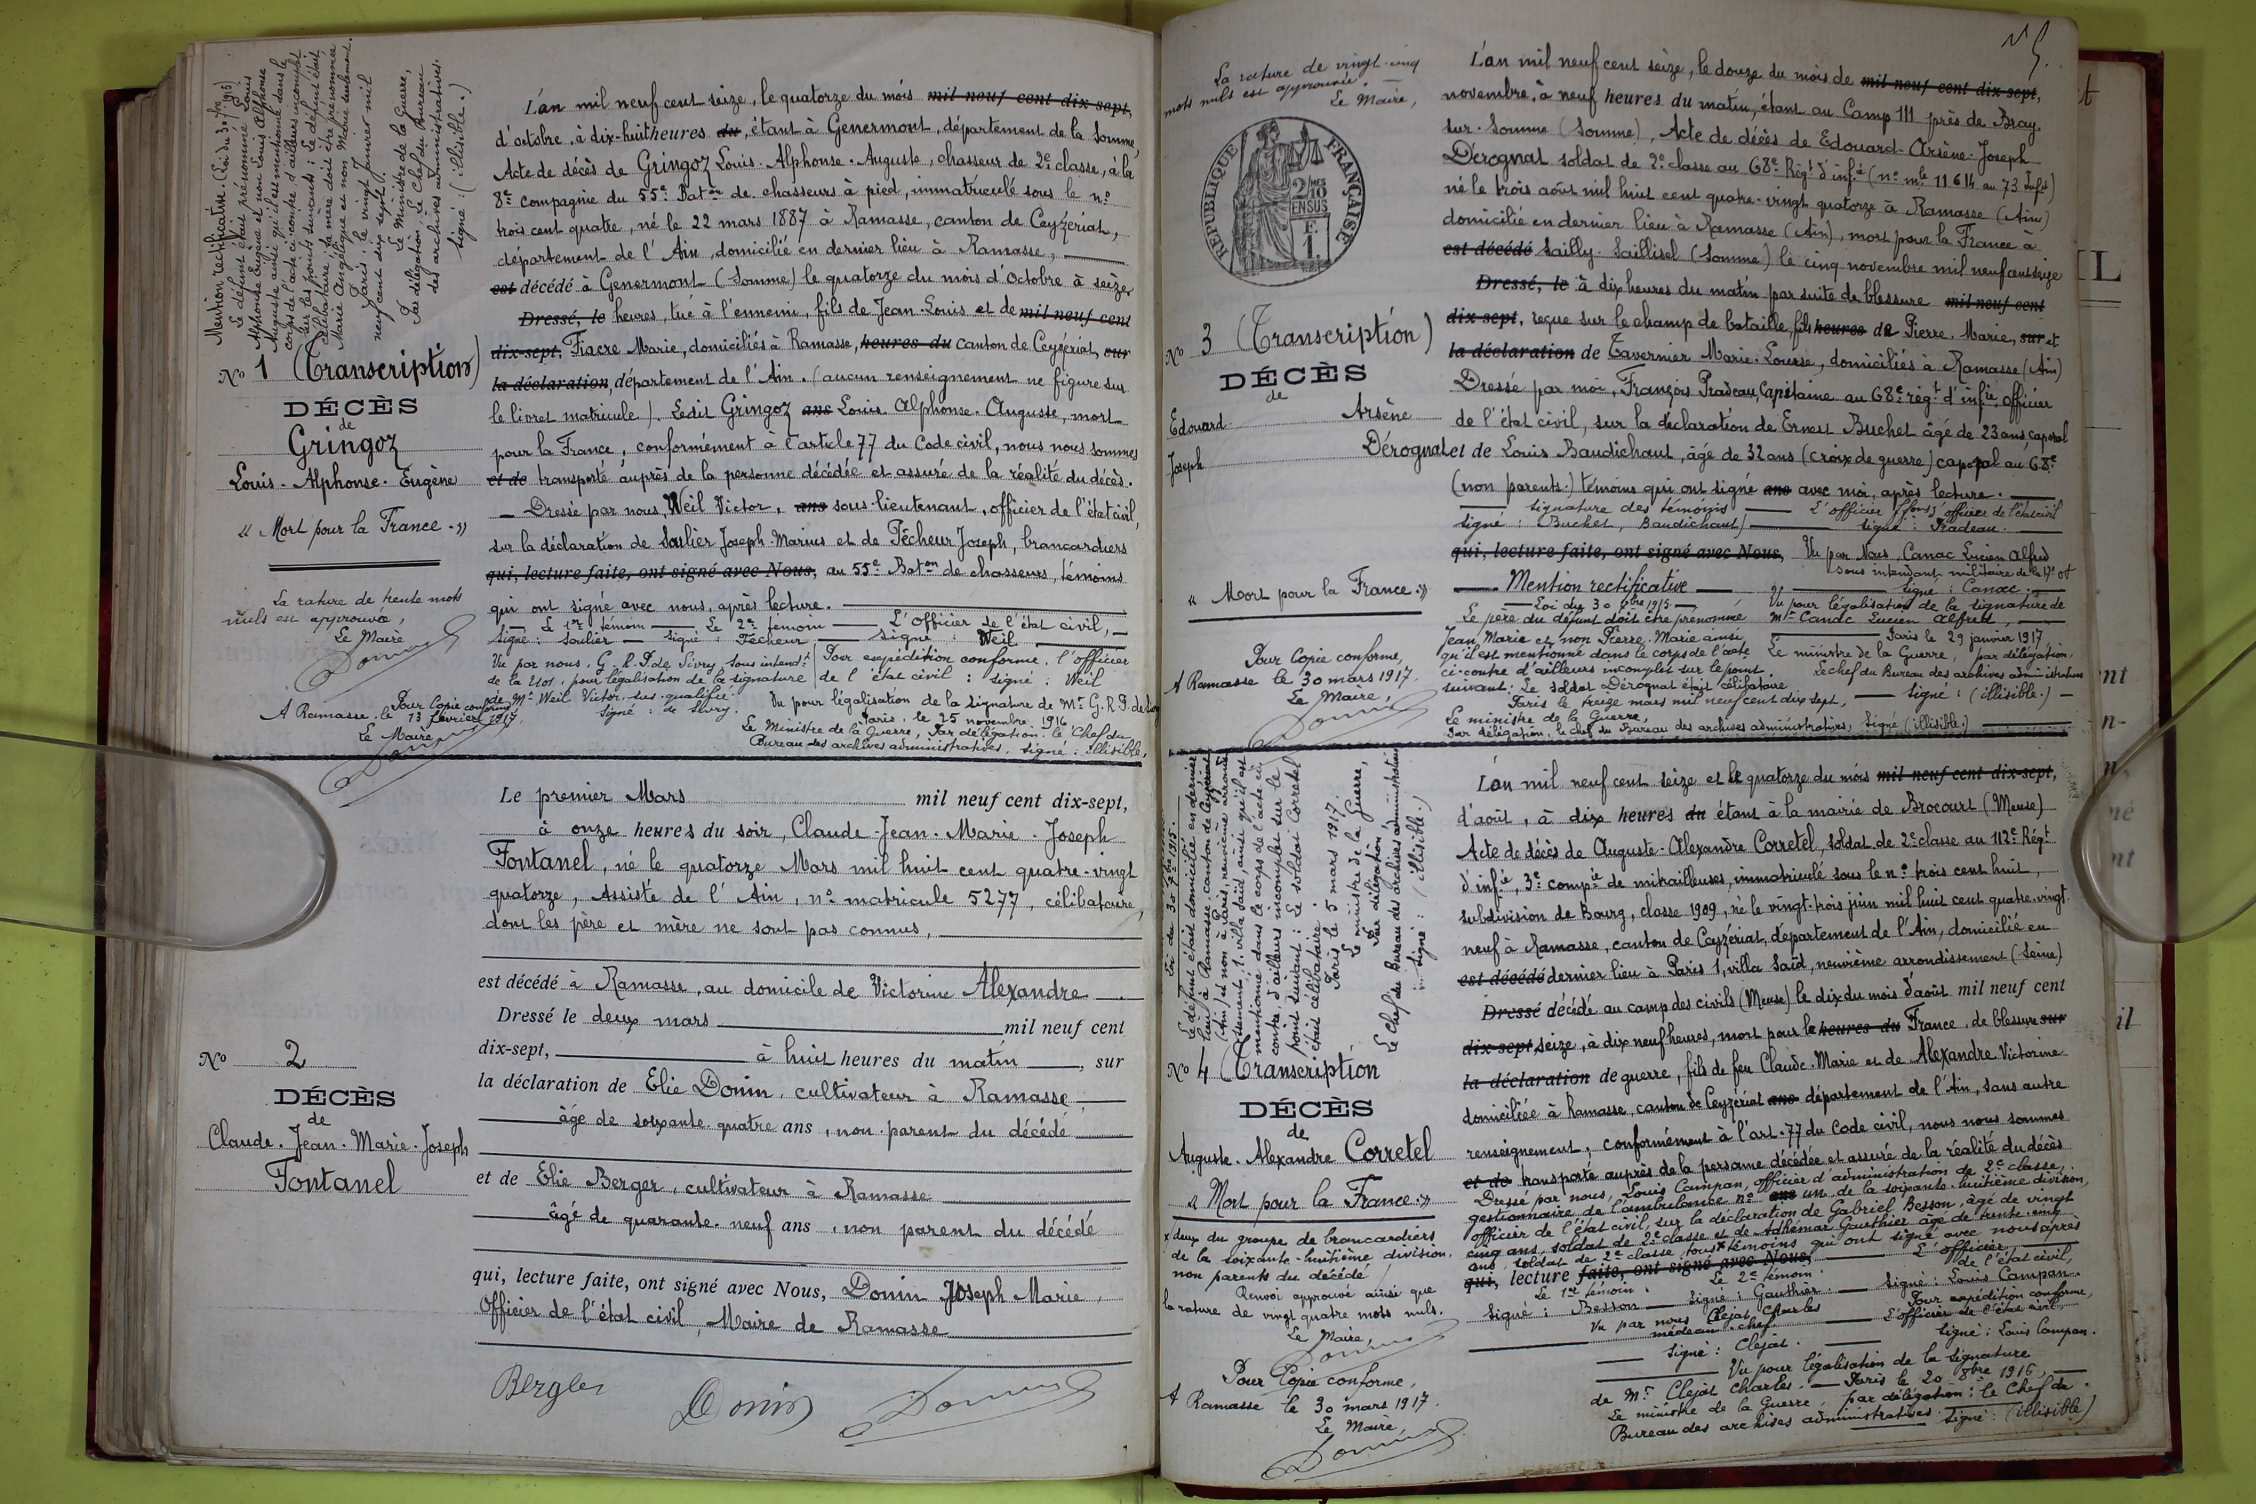 Mention rectificative. (Loi du 30 7bre 1915)
Le défunt était prénommé Louis
Alphonse Eugène et non Louis Alphonse
Auguste ainsi qu'il est mentionné dans le
corps de l'acte ci-contre d'ailleurs incomplet
sur les points suivants : Le défunt était
célibataire, sa mère doit être prénommée
Marie Angélique et non Marie seulement.
Paris le vingt Janvier mil
neuf cent dix sept.
Le Ministre de la Guerre,
Par délégation, Le Chef du Bureau
des archives administratives.
signé : (illisible.)
No 1 (Transcription)
DÉCÈS
de
Gringoz
Louis - Alphonse - Eugène
« Mort pour la France . »
La rature de trente mots
nuls est approuvée,
Le Maire
L'an mil neuf cent seize, le quatorze du mois mil neuf cent dix-sept,
d'octobre, à dix-huit heures du, étant à Genermont, département de la Somme,
Acte de décès de Gringoz Louis - Alphonse - Auguste, chasseur de 2e classe, à la
8e compagnie du 55e Baton de chasseurs à pied, immatriculé sous le no
trois cent quatre, né le 22 mars 1887 à Ramasse, canton de Ceyzériat,
département de l'Ain, domicilié en dernier lieu à Ramasse,
est décédé à Genermont (Somme) le quatorze du mois d'Octobre à seize
Dressé, le heures, tué à l'ennemi, fils de Jean-Louis et de mil neuf cent
dix-sept, Fiacre Marie, domiciliés à Ramasse, heures du canton de Ceyzériat, sur
la déclaration, département de l'Ain. (aucun renseignement ne figure sur
le livret matricule). Ledit Gringoz ans Louis Alphonse - Auguste, mort
pour la France, conformément à l'article 77 du Code civil, nous nous sommes
et de transporté auprès de la personne décédée et assuré de la réalité du décès.
Dressé par nous, Weil Victor, ans sous-lieutenant, officier de l'état civil,
sur la déclaration de Soulier Joseph-Marius et de Pécheur Joseph, brancardiers
qui, lecture faite, ont signé avec Nous, au 55e Baton de chasseurs, témoins
qui ont signé avec nous, après lecture.
Le 1er témoin Le 2e témoin L'officier de l'état civil,
Signé : Soulier signé : Pécheur signé : Weil
Vu par nous, G. R. P. de Sivry, Sous intendt Pour expédition conforme, l'officier
de la 2101, pour légalisation de la signature de l'état civil : signé : Weil
de Mr Weil Victor, sus-qualifié.
Signé : de Sivry.
Vu pour légalisation de la signature de Mr G. R. P. de Sivry
Paris, le 25 novembre 1916
Le Ministre de la Guerre, Par délégation, le Chef du
Bureau des archives administratives, signé : illisible,
Pour Copie conforme
A Ramasse, le 13 février 1917,
Le Maire
Le premier Mars mil neuf cent dix-sept,
à onze heures du soir, Claude-Jean-Marie-Joseph
Fontanel, né le quatorze Mars mil huit cent quatre-vingt
quatorze, Assisté de l'Ain, no matricule 5277, célibataire,
dont les père et mère ne sont pas connus,
est décédé à Ramasse, au domicile de Victorine Alexandre
Dressé le deux mars mil neuf cent
dix-sept, à huit heures du matin, sur
la déclaration de Elie Donin, cultivateur à Ramasse,
âgé de soixante-quatre ans, non parent du décédé
No 2
DÉCÈS
de
Claude-Jean-Marie-Joseph
Fontanel
et de Elie Berger, cultivateur à Ramasse
âgé de quarante-neuf ans, non parent du décédé
qui, lecture faite, ont signé avec Nous, Donin Joseph Marie,
Officier de l'état civil, Maire de Ramasse
Berger Donin
La rature de vingt-cinq
mots nuls est approuvée
Le Maire,
RÉPUBLIQUE FRANÇAISE
2/10 MES
EN SUS
F.
1.
No 3 (Transcription)
DÉCÈS
de
Edouard Arsène
Joseph Dérognat
« Mort pour la France . »
Pour Copie conforme,
A Ramasse le 30 mars 1917.
Le Maire,
L'an mil neuf cent seize, le douze du mois de mil neuf cent dix-sept,
novembre, à neuf heures du matin, étant au Camp 111 près de Bray
sur-Somme (Somme), Acte de décès de Edouard-Arsène-Joseph
Dérognat soldat de 2e classe au 68e Régt d'infie (no mle 11614 au 73 Infie)
né le trois août mil huit cent quatre-vingt quatorze à Ramasse (Ain)
domicilié en dernier lieu à Ramasse (Ain), mort pour la France à
est décédé Sailly-Saillisel (Somme) le cinq novembre mil neuf cent seize
Dressé, le à dix heures du matin par suite de blessure mil neuf cent
dix-sept, reçue sur le champ de bataille, fils heures de Pierre-Marie, sur et
la déclaration de Tavernier Marie-Louise, domiciliés à Ramasse (Ain)
Dressé par moi, François Pradeau, Capitaine au 68e régt d'infie, officier
de l'état civil, sur la déclaration de Ernest Buchet âgé de 23 ans, caporal
et de Louis Baudichaut, âgé de 32 ans (croix de guerre) caporal au 68e
(non parents.) témoins qui ont signé ans avec moi, après lecture.
Signature des témoins L'officier fons d'officier de l'état civil
Signé : Buchet, Baudichaut) signé : Pradeau.
qui, lecture faite, ont signé avec Nous, Vu par Nous, Canac Lucien Alfred
sous intendant militaire de la 17e DI
Mention rectificative signé : Canac.
Loi du 30 7bre 1915 Vu pour légalisation de la signature de
Le père du défunt doit être prénommé Mr Canac Lucien Alfred,
Jean Marie et non Pierre-Marie ainsi Paris le 29 janvier 1917,
qu'il est mentionné dans le corps de l'acte Le ministre de la Guerre, par délégation,
ci-contre d'ailleurs incomplet sur le point Le chef du Bureau des archives administratives
suivant : Le soldat Dérognat était célibataire signé : (illisible.)
Paris le treize mars mil neuf cent dix sept,
Le ministre de la Guerre,
Par délégation, le chef du Bureau des archives administratives, signé (illisible.)
Loi du 30 7bre 1915.
Le défunt était domicilié en dernier
lieu à Ramasse, canton de Ceyzériat
(Ain) et non à Paris, neuvième arrondis
sement, 1, villa Saïd, ainsi qu'il est
mentionné dans le corps de l'acte ci-
contre d'ailleurs incomplet sur le
point suivant : Le soldat Corretel
était célibataire.
Paris le 5 mars 1917.
Le ministre de la Guerre,
Par délégation
Le chef du Bureau des archives administratives
signé : (illisible.)
No 4 (Transcription
DÉCÈS
de
Auguste-Alexandre Corretel
« Mort pour la France . »
x deux du groupe de brancardiers
de la soixante-huitième division,
non parents du décédé
Renvoi approuvé ainsi que
la rature de vingt quatre mots nuls.
Le Maire,
Pour Copie conforme,
A Ramasse le 30 mars 1917.
Le Maire
L'an mil neuf cent seize et le quatorze du mois mil neuf cent dix-sept,
d'août, à dix heures du étant à la mairie de Brocourt (Meuse)
Acte de décès de Auguste-Alexandre Corretel, soldat de 2e classe au 112e Régt
d'infie, 3e compie de mitrailleuses, immatriculé sous le no trois cent huit,
subdivision de Bourg, classe 1909, né le vingt-trois juin mil huit cent quatre-vingt
neuf à Ramasse, canton de Ceyzériat, département de l'Ain, domicilié en
est décédé dernier lieu à Paris 1, villa Saïd, neuvième arrondissement (Seine)
Dressé décédé au camp des civils (Meuse) le dix du mois d'août mil neuf cent
dix-sept seize, à dix neuf heures, mort pour la heures du France, de blessure sur
la déclaration de guerre, fils de feu Claude-Marie et de Alexandre Victorine
domiciliée à Ramasse, canton de Ceyzériat ans département de l'Ain, sans autre
renseignement, conformément à l'art. 77 du Code civil, nous nous sommes
et de transporté auprès de la personne décédée et assuré de la réalité du décès
Dressé par nous, Louis Campan, officier d'administration de 2e classe,
gestionnaire de l'ambulance no ans un de la soixante-huitième division,
officier de l'état civil, sur la déclaration de Gabriel Besson, âgé de vingt
cinq ans, soldat de 2e classe et de Adhémar Gauthier âgé de trente-cinq
ans, soldat de 2e classe, tous x témoins qui ont signé avec nous après
qui, lecture faite, ont signé avec Nous, L'officier
Le 1er témoin. Le 2e témoin. de l'état civil,
Signé : Besson signé : Gauthier. signé : Louis Campan.
Vu par nous Clejat Charles Pour expédition conforme,
médecin-chef L'officier de l'état civil,
Signé : Clejat. Signé : Louis Campan.
Vu pour légalisation de la signature
de Mr Clejat Charles. Paris le 20 8bre 1916,
Le ministre de la Guerre, par délégation : le Chef du
Bureau des archives administratives. signé : (illisible)